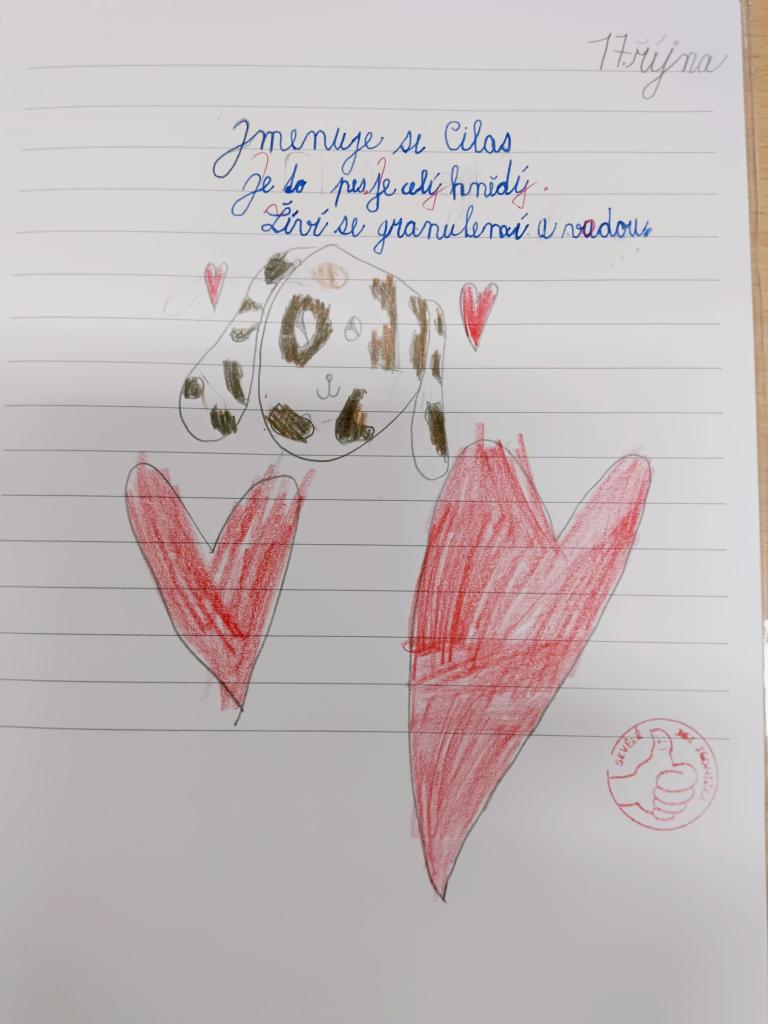 17. října
Jmenuje se Cilas
Je to pes. Je celý hnědý.
Živí se granulemi a vodou.
SKVĚLE JEDNIČKA